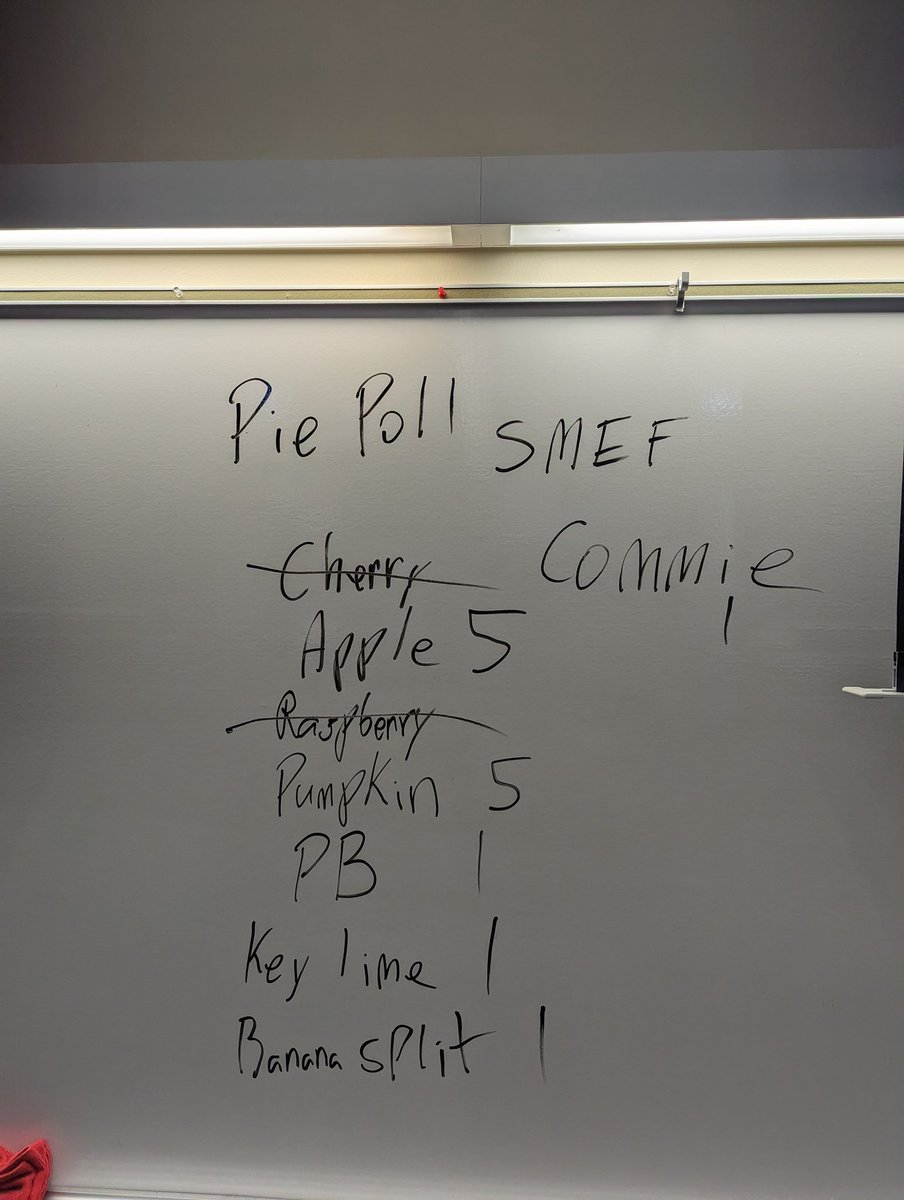 Pie Poll SMEF
Cherry
Commie
1
Apple 5
Raspberry
Pumpkin 5
PB 1
Key lime 1
Banana split 1